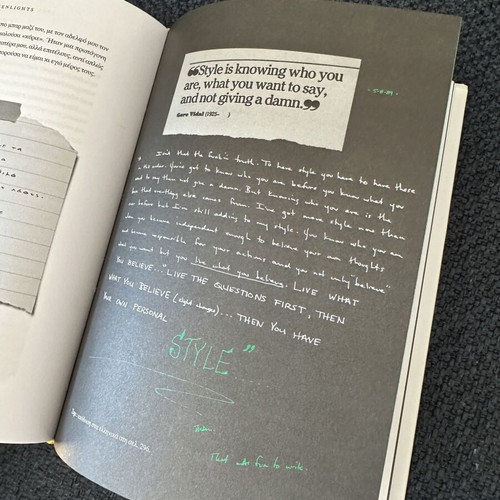 ENLIGHTS
το μπαρ μαζί του, με τον αδελφό μου τον
«κύριε». Ήταν μια πρωτόγονη
μου, αλλά επιτέλους, αντί απλώς
να είμαι κι εγώ μέρος τους.
“Style is knowing who you
are, what you want to say,
and not giving a damn.”
Gore Vidal (1925– )
Isn't that the fuckin truth. To have style you have to have these
in this order. You've got to know who you are before you know what you
want to say then not give a damn. But knowing who you are is the
base that everything else comes from. I've got more style now than
ever before but I'm still adding to my style. You know who you are
when you become independent enough to believe your own thoughts
and become responsible for your actions and you not only believe
what you want but you live what you believe. LIVE WHAT
YOU BELIEVE..." LIVE THE QUESTIONS FIRST, THEN
WHAT YOU BELIEVE (slight changes)... THEN YOU HAVE
YOUR OWN PERSONAL
"STYLE"
That was fun to write
απόδοση στα ελληνικά στη σελ. 296.